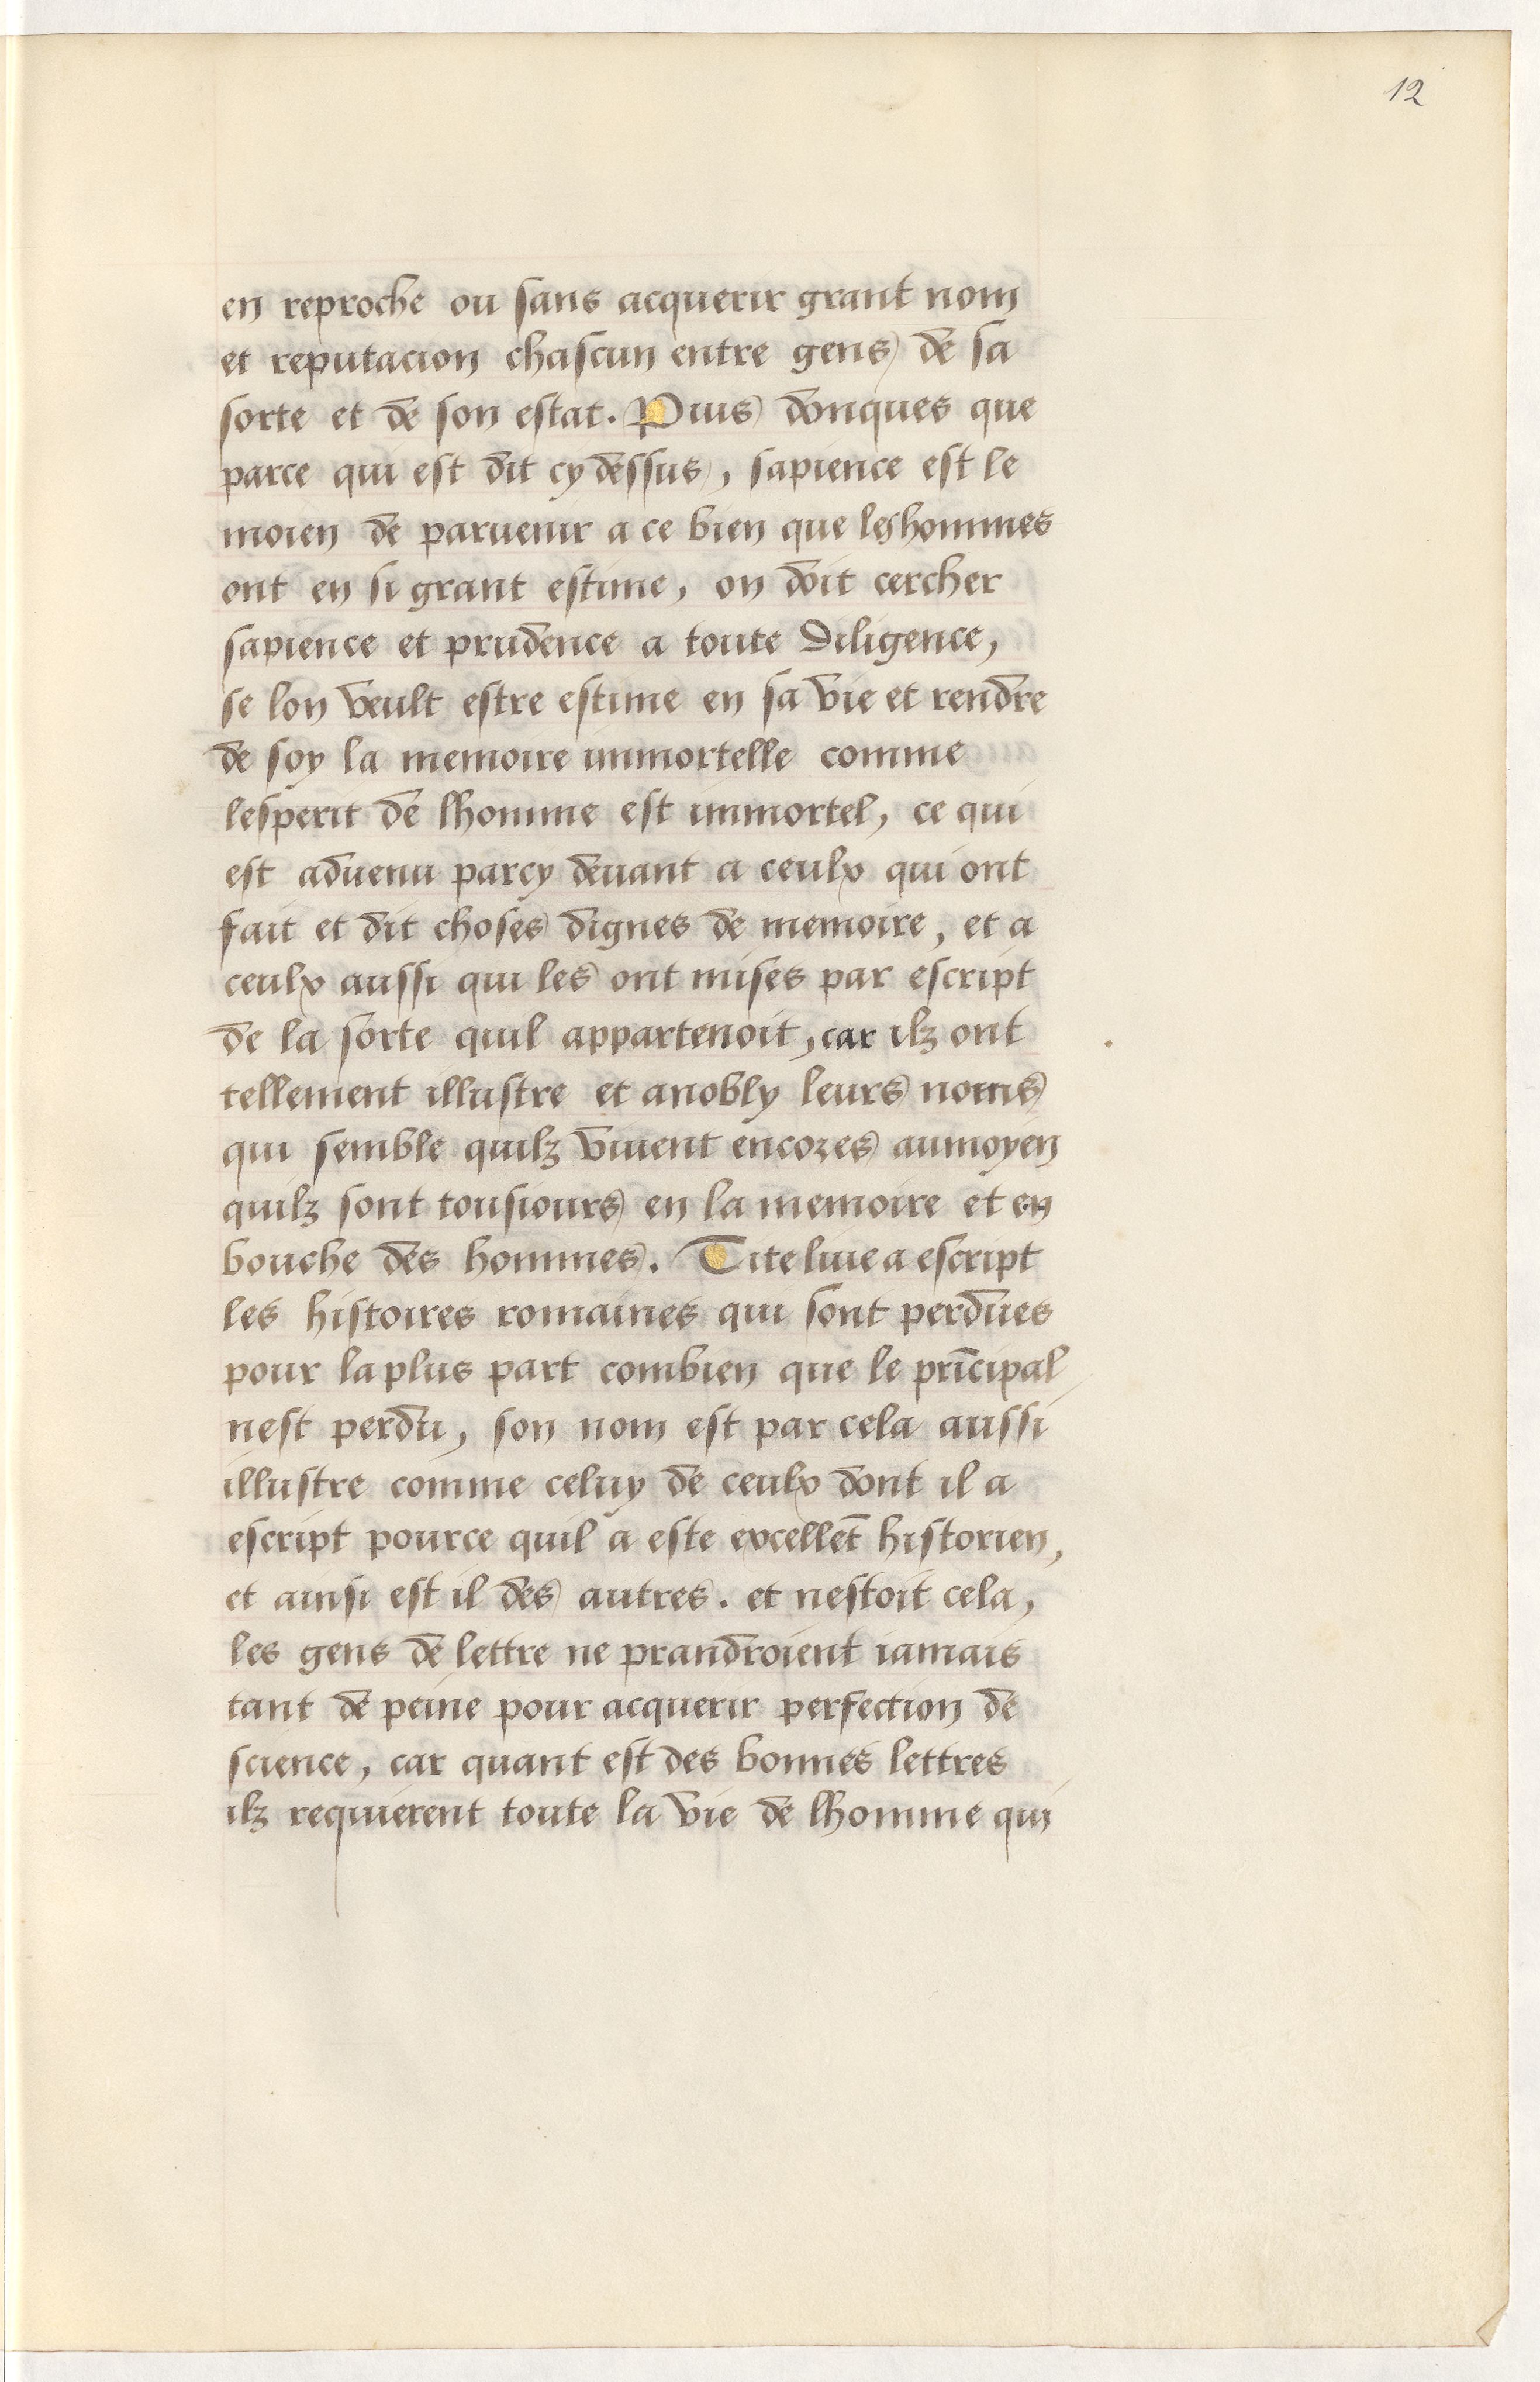 12
en reproche ou sans acquerir grant nom
et reputacion chascun entre gens de sa
sorte et de son estat. Puis donques que
parce qui est dit cy dessus, sapience est le
moien de paruenir a ce bien que les hommes
ont en si grant estime, on doit cercher
sapience et prudence a toute diligence,
se lon veult estre estime en sa vie et rendre
de soy la memoire immortelle comme
lesperit de lhomme est immortel, ce qui
est aduenu parcy deuant a ceulx qui ont
fait et dit choses dignes de memoire, et a
ceulx aussi qui les ont mises par escript
de la sorte quil appartenoit, car ilz ont
tellement illustre et anobly leurs noms
qui semble quilz viuent encores aumoyen
quilz sont tousiours en la memoire et en
bouche des hommes. Tite liue a escript
les histoires romaines qui sont perdues
pour la plus part combien que le prīcipal
nest perdu, son nom est par cela aussi
illustre comme celuy de ceulx dont il a
escript pource quil a este excellēt historien,
et ainsi est il des autres. et nestoit cela,
les gens de lettre ne prandroient iamais
tant de peine pour acquerir perfection de
science, car quant est des bonnes lettres
ilz requierent toute la vie de lhomme qui